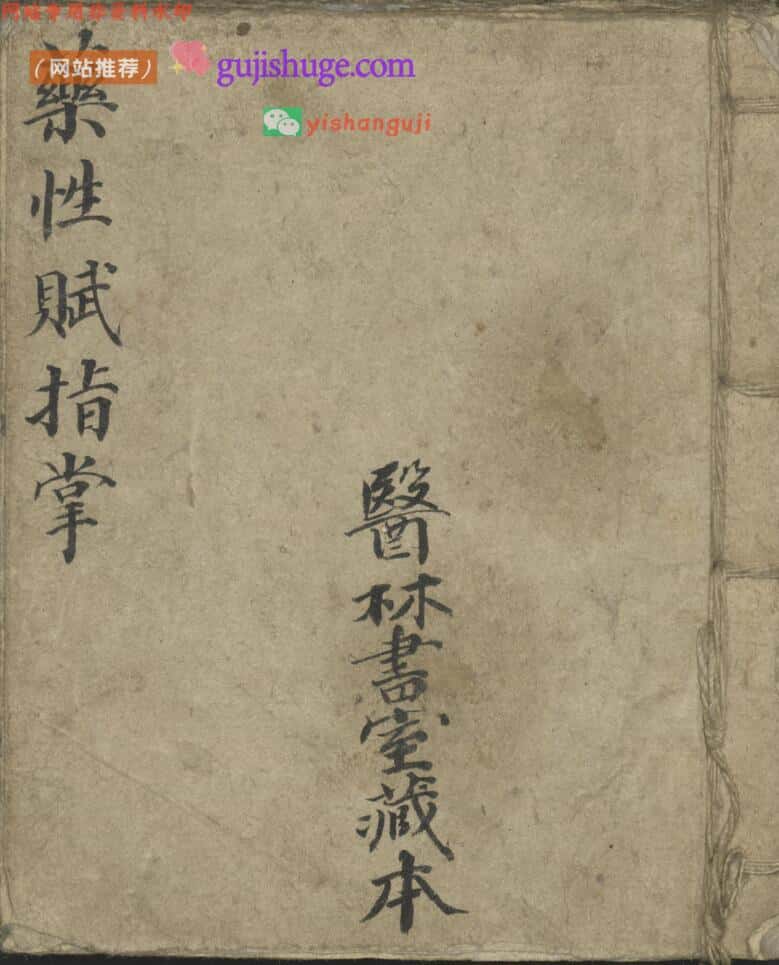 （网站推荐） gujishuge.com
yishanguji
藥性賦指掌
醫林書室藏本